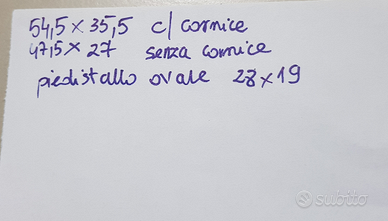 54,5 x 35,5 c/ cornice
47,5 x 27 senza cornice
piedistallo ovale 28 x 19
subito